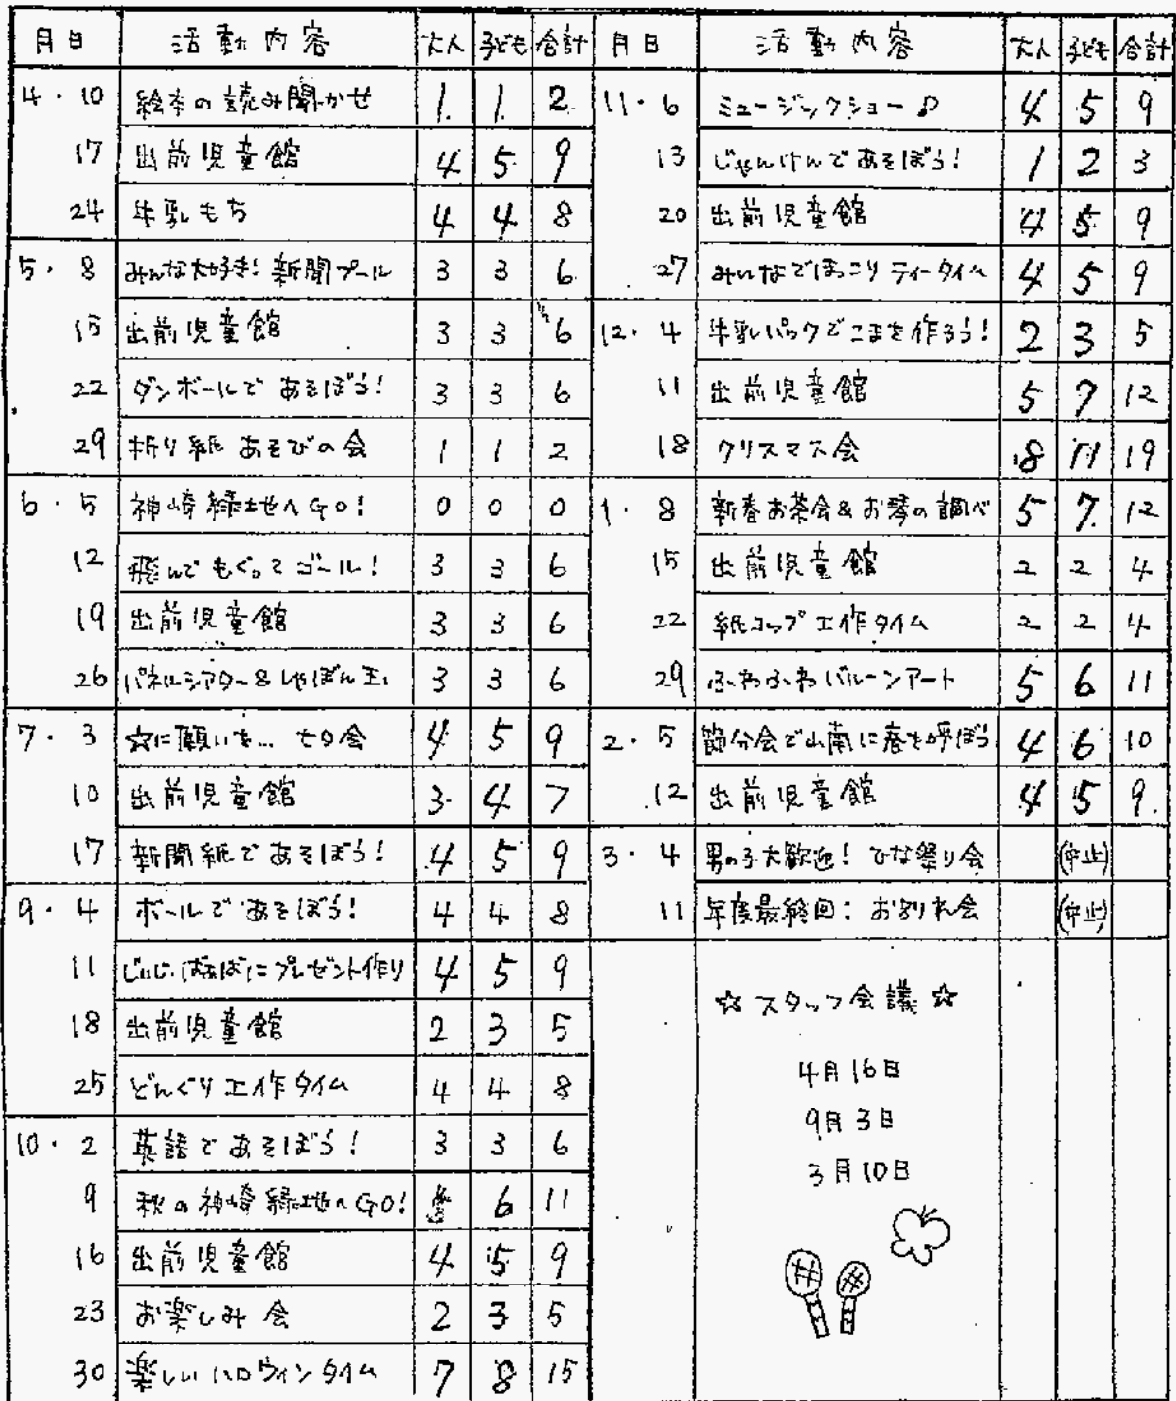 月日 活動内容 大人 子ども 合計
4・10 絵本の読み聞かせ 1 1 2
17 出前児童館 4 5 9
24 牛乳もち 4 4 8
5・8 みんな大好き!新聞プール 3 3 6
15 出前児童館 3 3 6
22 ダンボールであそぼう! 3 3 6
29 折り紙あそびの会 1 1 2
6・5 神崎緑地へGO! 0 0 0
12 飛んでもぐってゴール! 3 3 6
19 出前児童館 3 3 6
26 パネルシアター&しゃぼん玉 3 3 6
7・3 ☆に願いを…七夕会 4 5 9
10 出前児童館 3 4 7
17 新聞紙であそぼう! 4 5 9
9・4 ボールであそぼう! 4 4 8
11 じぃじ、ばぁばにプレゼント作り 4 5 9
18 出前児童館 2 3 5
25 どんぐり工作タイム 4 4 8
10・2 英語であそぼう! 3 3 6
9 秋の神崎緑地へGO! 6 11
16 出前児童館 4 5 9
23 お楽しみ会 2 3 5
30 楽しいハロウィンタイム 7 8 15
月日 活動内容 大人 子ども 合計
11・6 ミュージックショー♪ 4 5 9
13 じゃんけんであそぼう! 1 2 3
20 出前児童館 4 5 9
27 みんなでほっこりティータイム 4 5 9
12・4 牛乳パックでこまを作ろう! 2 3 5
11 出前児童館 5 7 12
18 クリスマス会 8 11 19
1・8 新春お茶会&お琴の調べ 5 7 12
15 出前児童館 2 2 4
22 紙コップ工作タイム 2 2 4
29 ふわふわバルーンアート 5 6 11
2・5 節分会で山南に春を呼ぼう 4 6 10
12 出前児童館 4 5 9
3・4 男の子大歓迎!ひな祭り会 (中止)
11 年度最終回:お別れ会 (中止)
☆スタッフ会議☆
4月16日
9月3日
3月10日